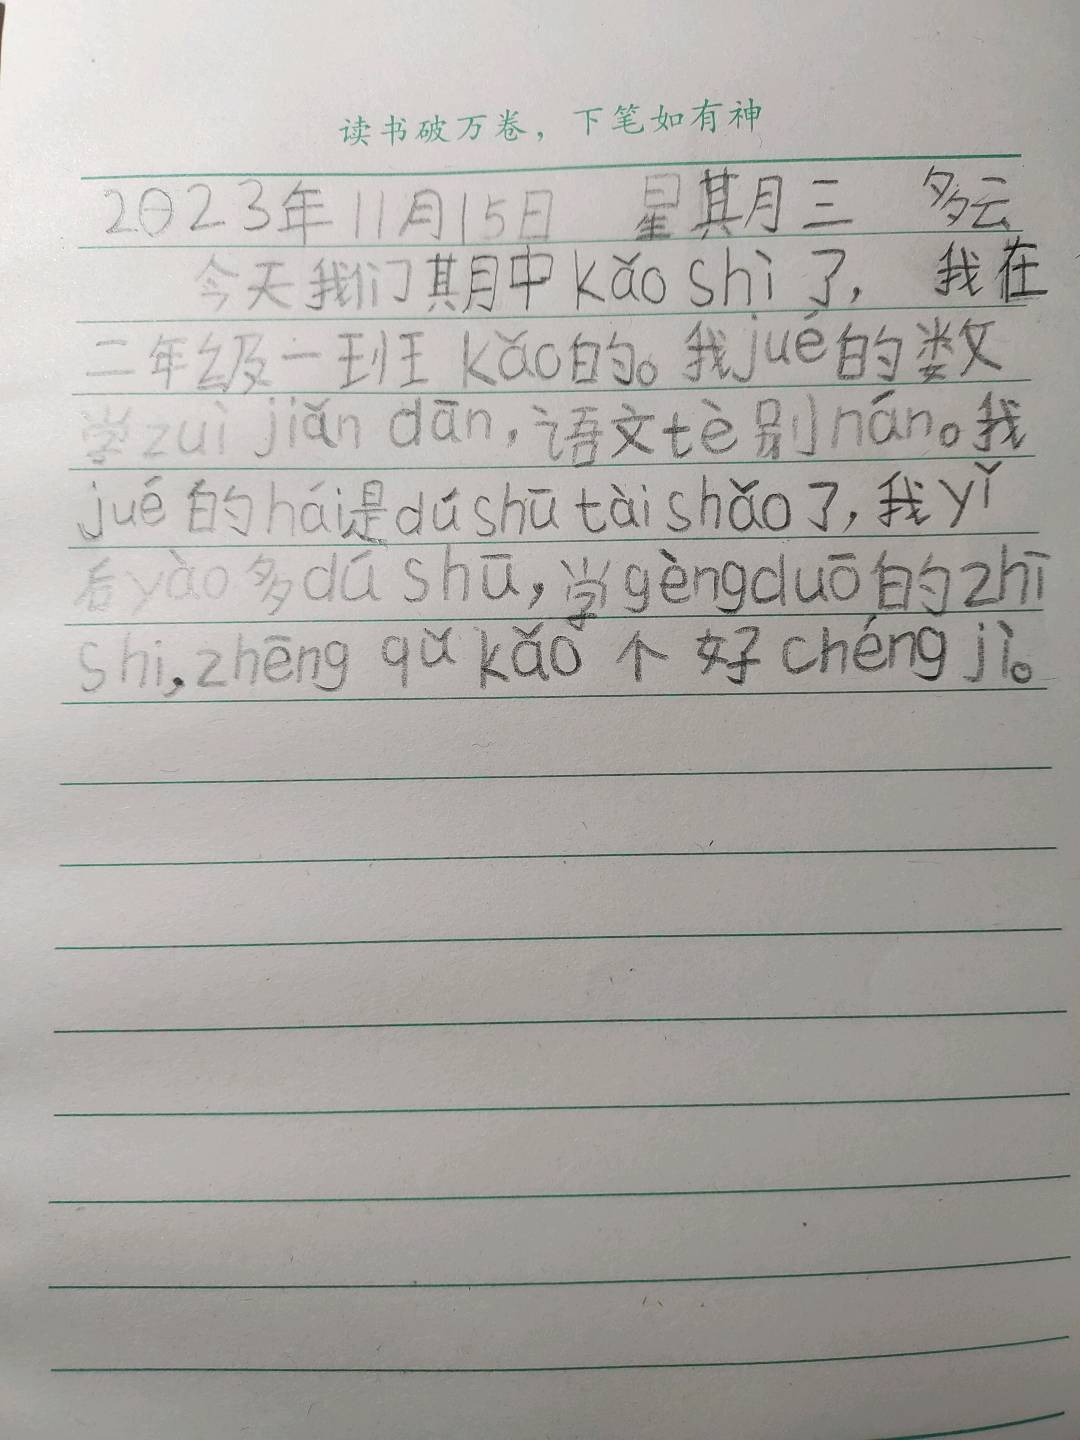 读书破万卷，下笔如有神
2023年11月15日 星期三 多云
今天我们期中kǎo shì了，我在
二年级一班kǎo的。我jué的数
学zuì jiǎn dān，语文tè别nán。我
jué的hái是dú shū tài shǎo了，我yǐ
后yào多dú shū，学gèng duō的zhī
shi，zhēng qǔ kǎo个好chéng jì。